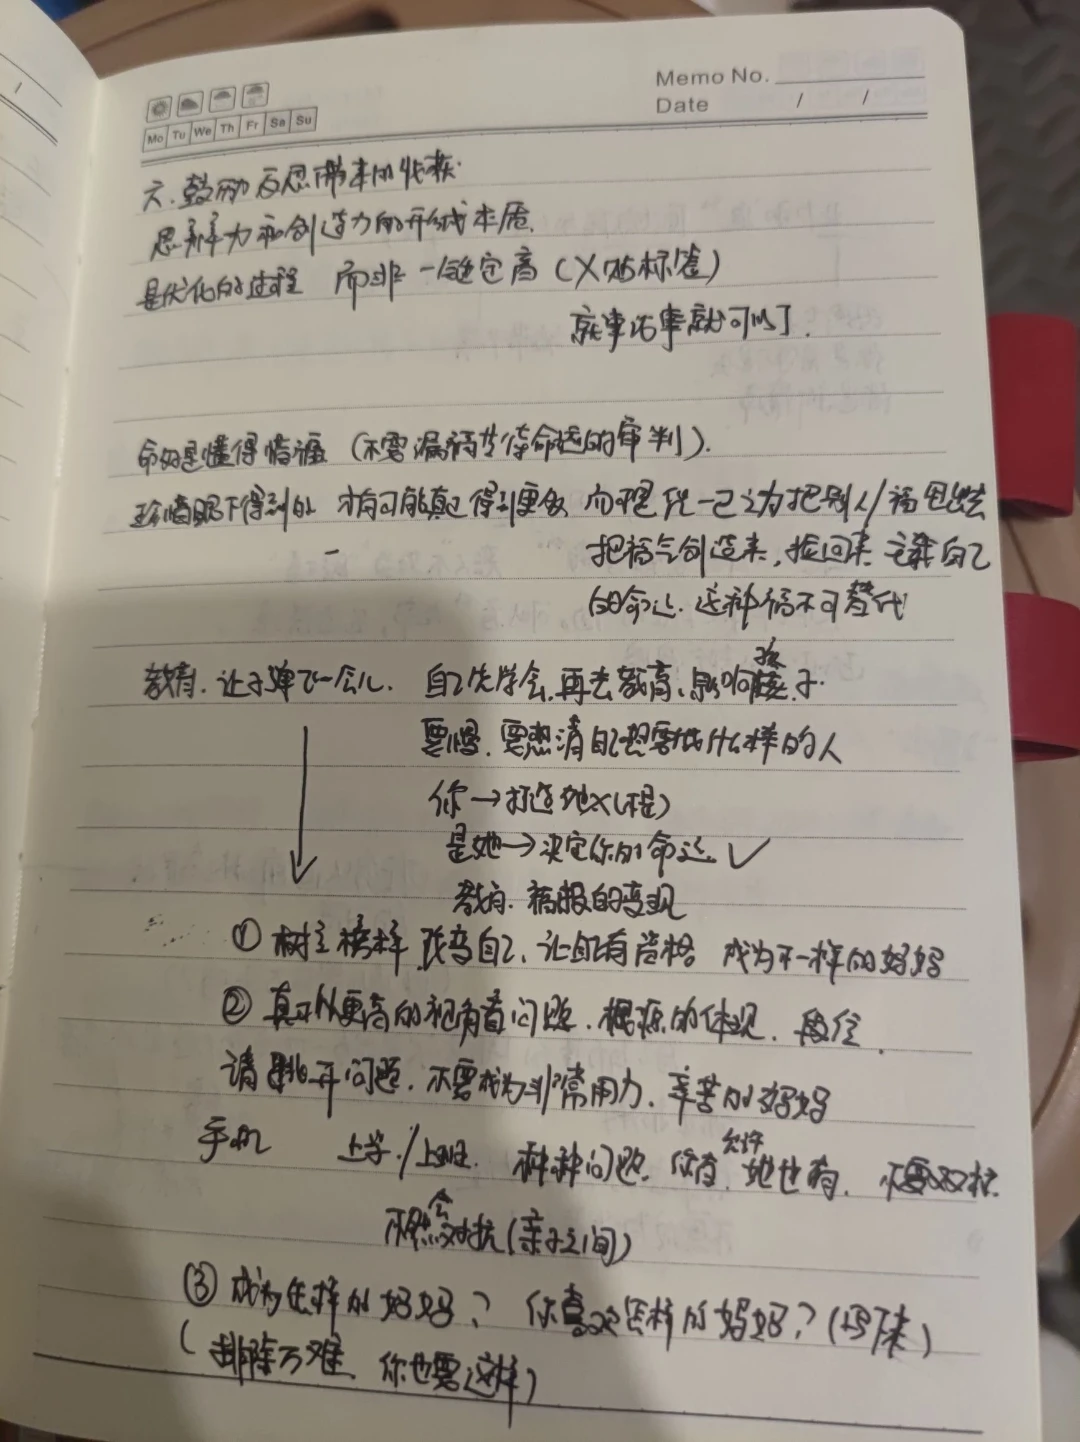 Memo No.
Date / /
Mo Tu We Th Fr Sa Su
六.鼓励反思带来的收获.
思辨力和创造力的形成本质.
是优化的过程 而非一锤定音(X贴标签)
就事论事就可以了.
命好是懂得惜福 (不要漏福 等待命运的审判).
珍惜眼下得到的 才有可能真正得到更多 而不是凭一己之力把别人/福甩出去
把福气创造来,捡回来 主宰自己
的命运.这种福不可替代
教育.让子弹飞一会儿. 自己先学会,再去教育、影响孩子.
要慢.要想清自己想要成什么样的人
你→打造她X(不是)
是她→决定你的命运.✓
教育.福报的变现
① 树立榜样 改变自己、让自己有资格 成为不一样的妈妈
② 真正从更高的视角看问题.根源的体现.段位.
请跳开问题.不要成为非常用力、辛苦的妈妈
手机 上学./上班. 种种问题.你有.允许她也有. 不要对抗
不然会对抗(亲子之间)
③ 成为怎样的妈妈? 你喜欢怎样的妈妈?(写下来)
(排除万难 你也要这样)